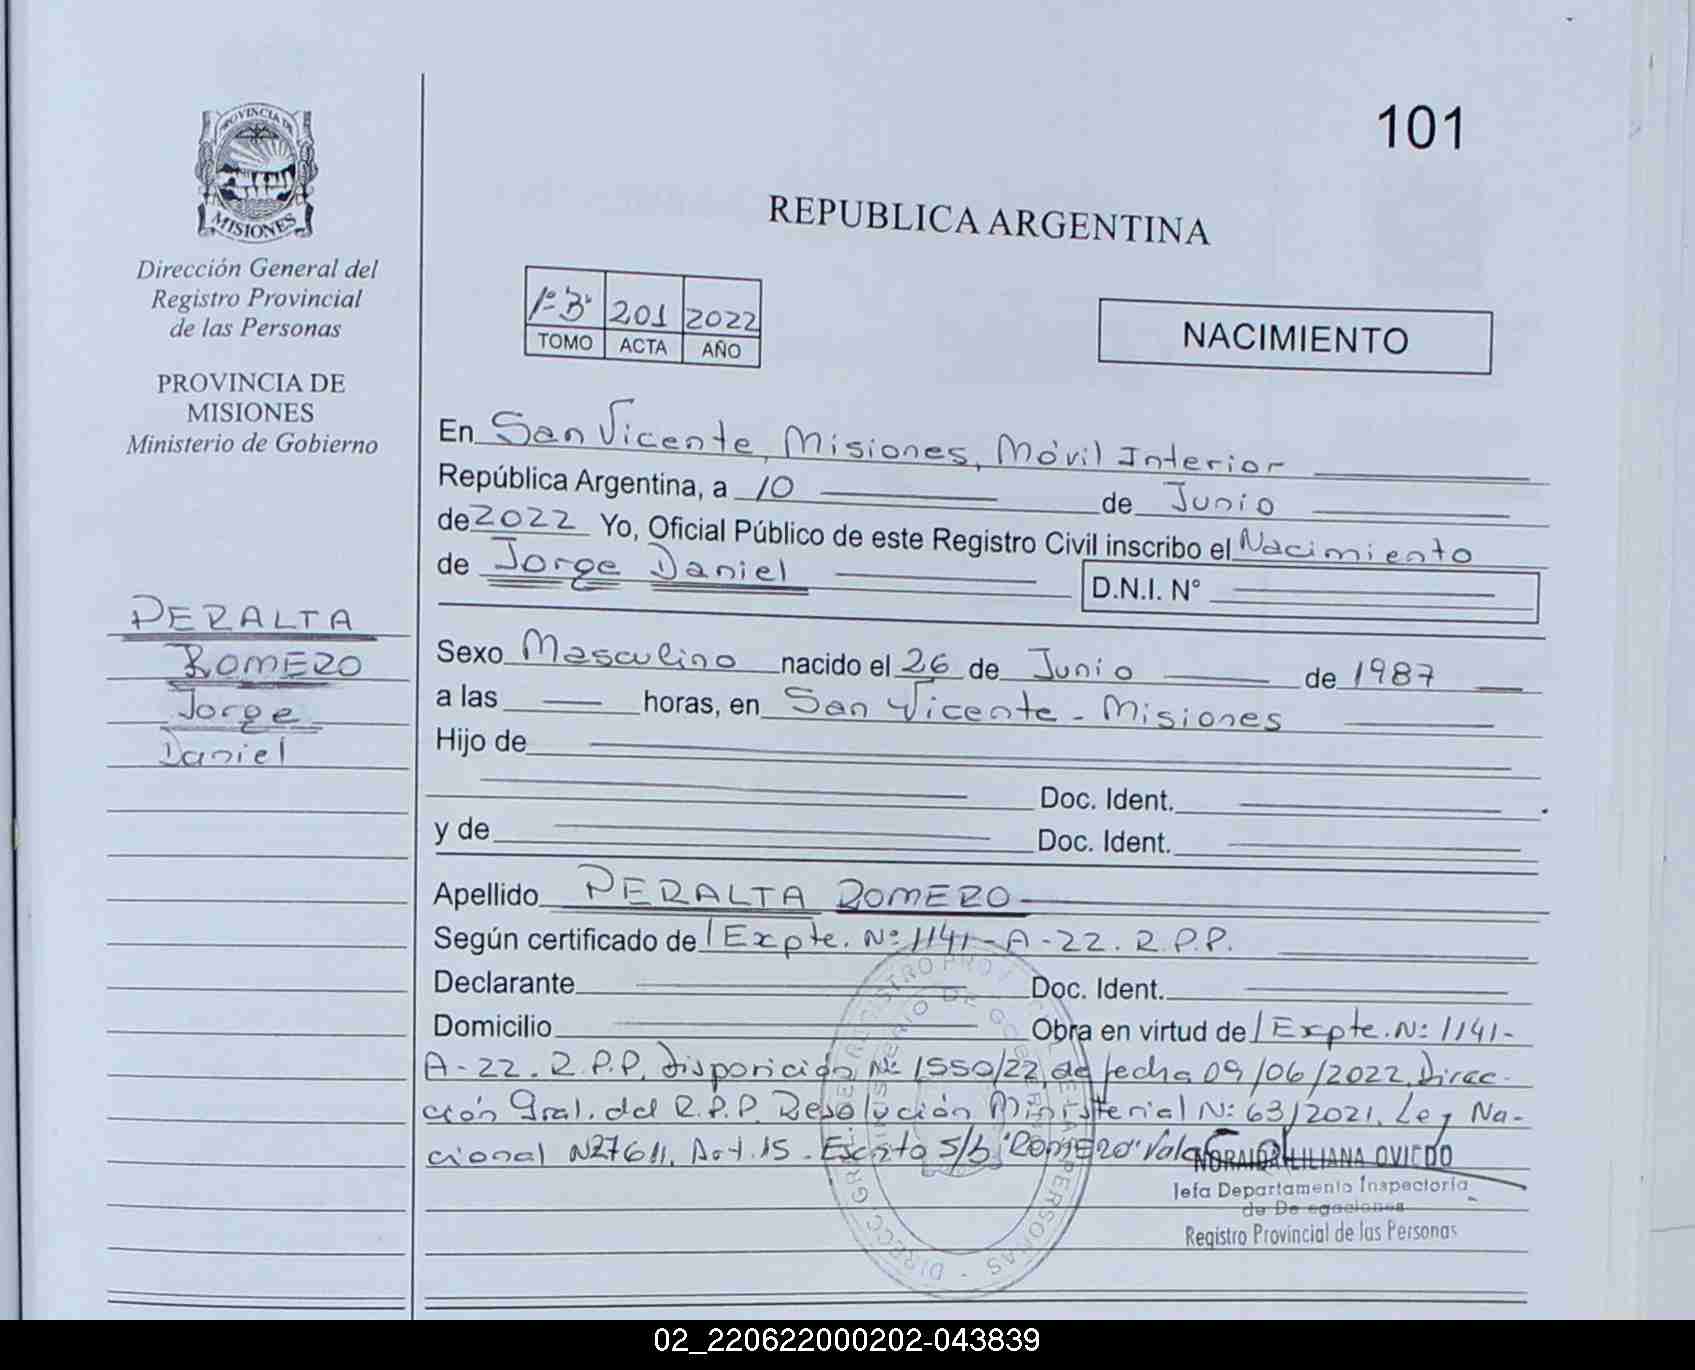 101
PROVINCIA DE
MISIONES
Dirección General del
Registro Provincial
de las Personas
PROVINCIA DE
MISIONES
Ministerio de Gobierno
PERALTA
ROMERO
Jorge
Daniel
REPUBLICA ARGENTINA
1º "B" 201 2022
TOMO ACTA AÑO
NACIMIENTO
En San Vicente, Misiones, Móvil Interior
República Argentina, a 10 de Junio
de 2022 Yo, Oficial Público de este Registro Civil inscribo el Nacimiento
de Jorge Daniel D.N.I. Nº
Sexo Masculino nacido el 26 de Junio de 1987
a las horas, en San Vicente - Misiones
Hijo de
Doc. Ident.
y de Doc. Ident.
Apellido PERALTA ROMERO
Según certificado de Expte. Nº 1141-A-22. R.P.P.
Declarante Doc. Ident.
Domicilio Obra en virtud de Expte. Nº 1141-
A-22. R.P.P. Disposición Nº 1550/22 de fecha 09/06/2022. Direc-
ción Gral. del R.P.P. Resolución Ministerial Nº 63/2021. Ley Na-
cional Nº 27611. Art. 15. Escrito S/b "ROMERO" Vale
NORAIDA LILIANA OVIEDO
Jefa Departamento Inspectoría
de Delegaciones
Registro Provincial de las Personas
02_220622000202-043839